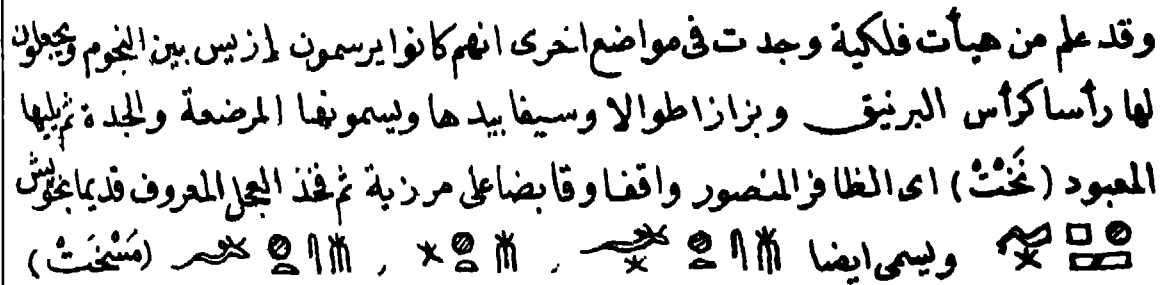 وقد علم من هيأت فلكية وجدت فى مواضع اخرى انهم كانوا يرسمون إزيس بين النجوم ويجعلون
لها رأسا كرأس البرنيق وبزازا طوالا وسيفا بيدها ويسمونها المرضعة والجدة ثم يليها
المعبود (نَخْتْ) اى الظافر المنصور واقفا وقابضا على مرزبة ثم فخذ العجل المعروف قديما
ويسمى ايضا , , (مَسْخَتْ)